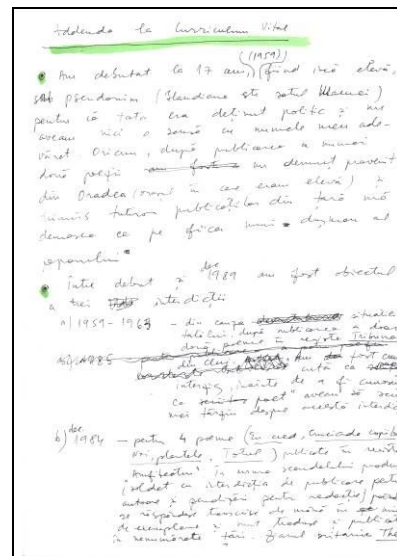 Addenda la Curriculum Vitae
(1959)
Am debutat la 17 ani, fiind încă elevă,
sub pseudonim (Blandiana este satul Mamei)
pentru că tata era deținut politic și nu
aveam nici o șansă cu numele meu ade-
vărat. Oricum, după publicarea a numai
două poezii un denunț provenit
din Oradea (orașul în care eram elevă) și
trimis tuturor publicațiilor din țară mă
demasca ca pe fiica unui dușman al
poporului.
Între debut și dec 1989 am fost obiectul
a trei interdicții
a) 1959-1963 - din cauza situației
tatălui, după publicarea a doar
două poeme în revista Tribuna
din Cluj. Am fost
interzisă înainte de a fi
ca poet aveam să
mai târziu despre această
b) dec 1984 - pentru 4 poeme (Eu cred, Cruciada copiilor,
Noi, plantele, Totul) publicate în revista
"Amfiteatru" în urma scandalului produs
(soldat cu interdicția de publicare pentru
autoare și penalizări pentru redacție)
se răspândesc transcrise de mână în
de exemplare și sunt traduse și publicate
în nenumărate țări. Ziarul britanic The